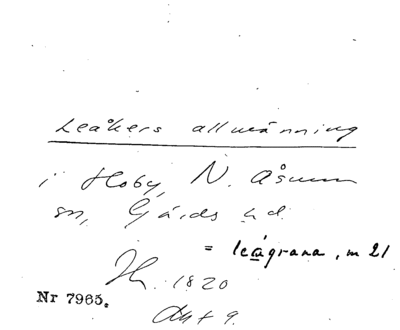 Leåkers allmänning
i Hoby, N. Åsum
sn, Gärds hd.
= leågrana, m 21
1820
Nr 7965.
Akt 9.